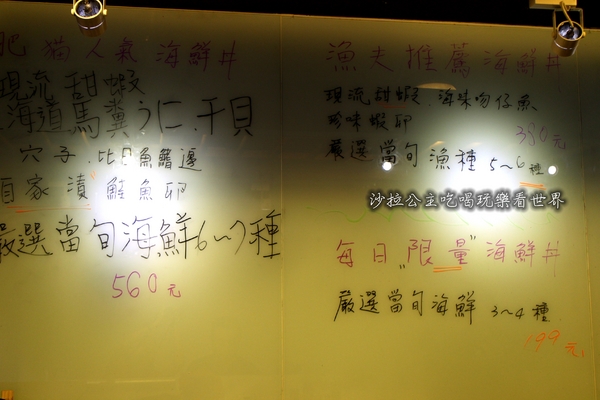 肥猫人氣海鮮丼
現流甜蝦
海道馬糞うに.干貝
穴子.比目魚鰭邊
自家漬鮭魚卵
嚴選當旬海鮮6~7種
560元
漁夫推薦海鮮丼
現流甜蝦.海味吻仔魚
珍味蝦卵
330元
嚴選當旬漁種5~6種
沙拉公主吃喝玩樂看世界
每日"限量"海鮮丼
嚴選當旬海鮮3~4種
199元